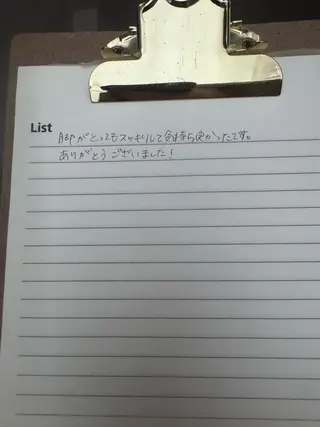 List
脚がとってもスッキリして気持ち良かったです。
ありがとうございました!